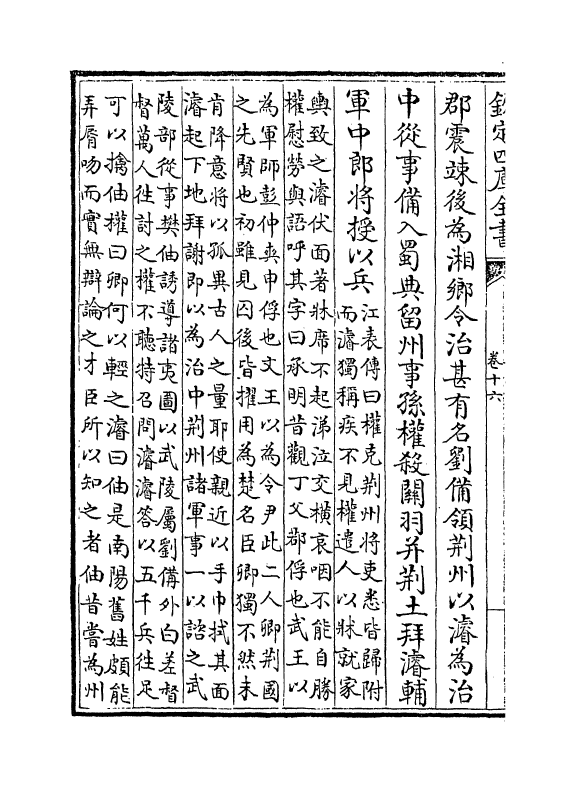 欽定四庫全書
卷十六
郡震竦後為湘鄉令治甚有名劉備領荆州以濬為治
中從事備入蜀典留州事孫權殺關羽并荆土拜濬輔
軍中郎將授以兵
江表傳曰權克荆州將吏悉皆歸附
而濬獨稱疾不見權遣人以牀就家
輿致之濬伏面著牀席不起涕泣交橫哀咽不能自勝
權慰勞與語呼其字曰承明昔觀丁父鄀俘也武王以
為軍師彭仲爽申俘也文王以為令尹此二人卿荆國
之先賢也初雖見囚後皆擢用為楚名臣卿獨不然未
肯降意將以孤異古人之量耶使親近以手巾拭其面
濬起下地拜謝即以為治中荆州諸軍事一以諮之武
陵部從事樊伷誘導諸夷圖以武陵屬劉備外白差督
督萬人徃討之權不聽特召問濬濬答以五千兵徃足
可以擒伷權曰卿何以輕之濬曰伷是南陽舊姓頗能
弄脣吻而實無辯論之才臣所以知之者伷昔嘗為州